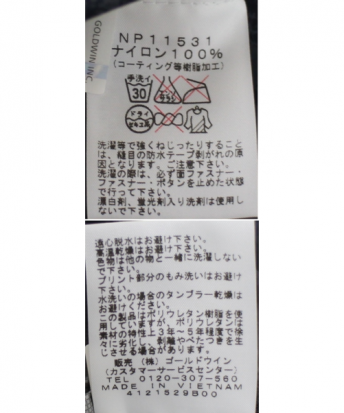 GOLDWIN INC.
NP11531
ナイロン100%
(コーティング等樹脂加工)
手洗イ
30
ドライ
セキユ系
洗濯等で強くねじったりすること
は、縫目の防水テープ剥がれの原
因となります。ご注意下さい。
洗濯の際は、必ず面ファスナー・
ファスナー・ボタンを止めた状態
で行って下さい。
漂白剤、蛍光剤入り洗剤は使用し
ないで下さい。
遠心脱水はお避け下さい。
高温乾燥はお避け下さい。
色物は他の物と一緒に洗濯しない
で下さい。
プリント部分のもみ洗いはお避け
下さい。
水洗いの場合のタンブラー乾燥は
お避け下さい。
この製品はポリウレタン樹脂を使
用していますが、ポリウレタンは
素材の特性上3年~5年程度で徐
々に劣化し、剥離やべたつきを生
じさせる場合があります。
販売 (株) ゴールドウイン
(カスタマーサービスセンター)
TEL 0120-307-560
MADE IN VIETNAM
4121529B00